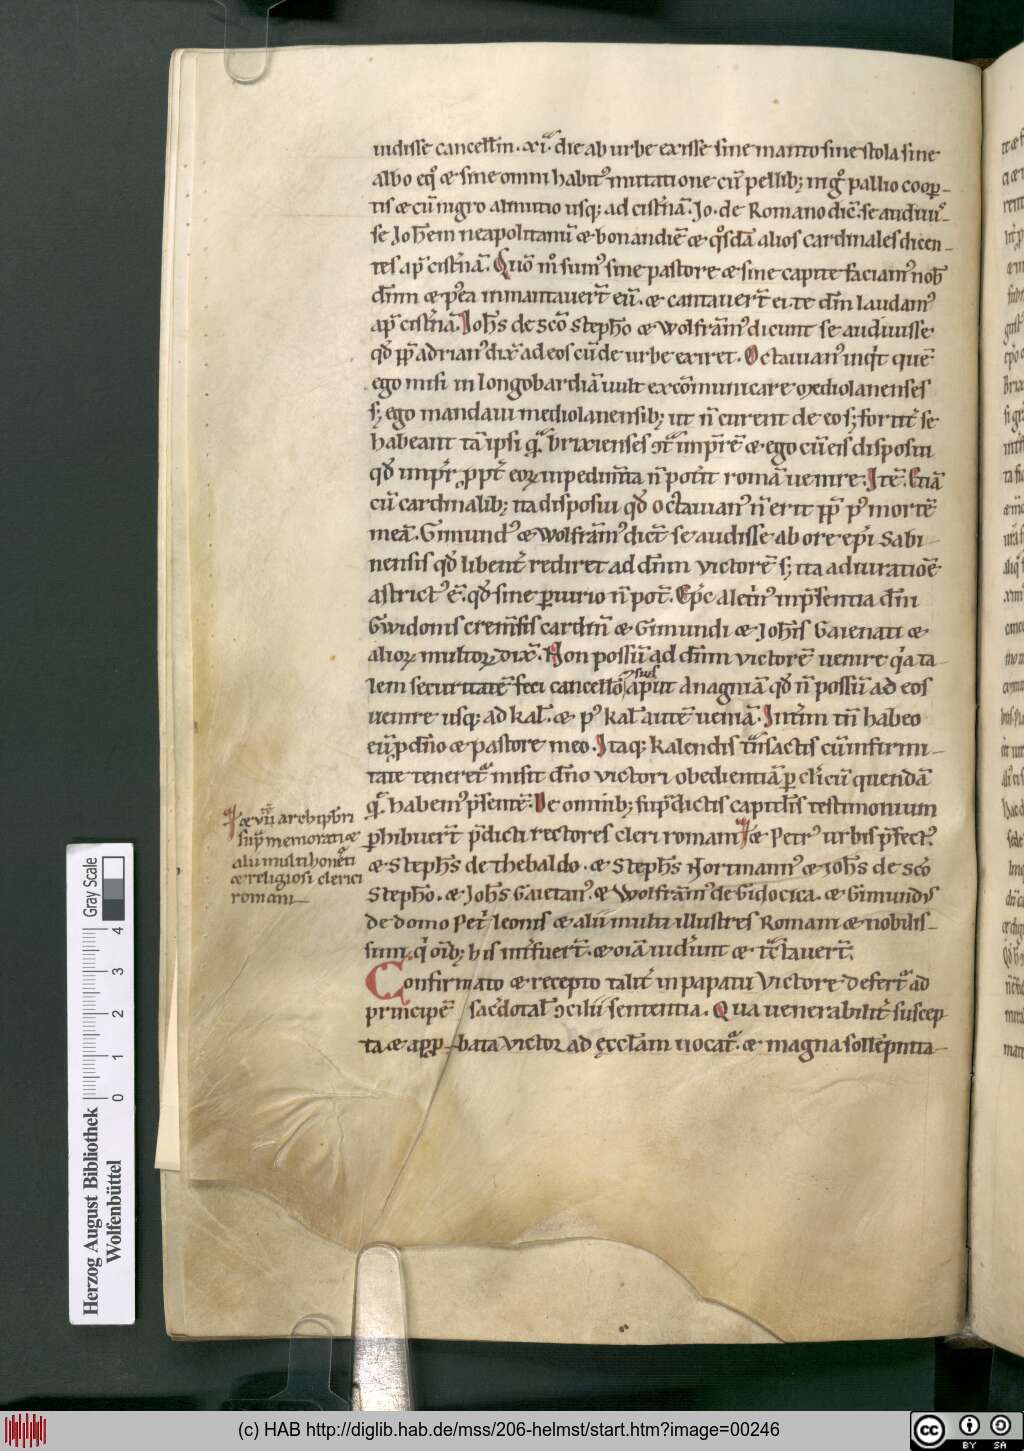 uidisse cancellm. xi. die ab urbe exisse sine manto sine stola sine
albo eq̊ & sine omni habit᷒ mutatione cū pellib; nig̊ pallio coop̲-
tis & cū nigro almutio usq; ad cist̃nā. Jo. de Romano dic̄ se audiuis-
se Joh̄em neapolitanū & bonandiē & q̊sdā alios cardinales dicen-
tes ap̄ cist̃nā. Quō m̊ sum᷒ sine pastore & sine capite faciam᷒ nob̄
dn̄m & p᷒ea inmantauer̄t eū. & cantauer̄t ei. te dm̄ laudam᷒
ap̄ cist̃nā. Joh̄s de sc̄o Steph̄o & Wolfrām᷒ dicunt se audiuisse
qd̄ pp̄ adrian᷒ dix̄ ad eos cū de urbe exiret. Octauian᷒ inq̇t quē
ego misi in longobardiā uult excōmunicare mediolanenses
s; ego mandaui mediolanensib; ut n̄ curent de eo s; fortit̃ se
habeant tā ipsi q̃ brixienses ɔt̃ imp̄rē & ego cū eis disposui
qd̄ imp̄r p̱pt̃ eoꝝ inpedim̄ta n̄ pot̃it romā uenire. Itē. Etiā
cū cardinalib; ita disposui qd̄ octauian᷒ n̄ erit pp̄ p᷒ mortē
meā. Gimund᷒ & Wolfrām᷒ dic̄t se audisse ab ore ep̄i Sabi-
nensis qd̄ libent̃ rediret ad dn̄m victorē s; ita adiuratiōe
astrict᷒ ē. qd̄ sine p̲iurio n̄ pot̄. Ep̄c alet̃n᷒ in p̄sentia dn̄i
Gwidonis crem̄sis cardiñ & Gimundi & Joh̄is Gaienati &
alioꝝ multoꝝ dix̄. Non possū ad dn̄m victorē uenire q̇a ta-
lem securitatē feci cancellō suɔ aput Anagniā qd̄ n̄ possū ad eos
uenire usq; ad kal̄. & p᷒ kal̄ autē ueniā. Int̃im tn̄ habeo
eū p̱ dn̄o & pastore meo. Itaq; kalendis tn̄sactis cū infirmi-
tate teneret᷑ misit dn̄o victori obedientiā p̲ cl̄icū quendā
q̃ habem᷒ p̄sentē. De omnib; sup̱dictis capitl̄is testimonium
p̲hibuer̄t p̄dicti rectores cleri romani & Petr᷒ urbis p̄fect᷒
& Steph̄s de thebaldo. & Steph̄s Nortmann᷒ & Joh̄s de sc̄o
Steph̄o. & Joh̄s Gaietan᷒. & Wolfrām᷒ de Gidocica. & Gimund᷒
de domo Pet̃ leonis & alii multi illustres Romani & nobilis-
simi. q̇ oīb; his int̃fuer̄t. & oīā uider̄unt & tr̄ctauer̄t.
Confirmato & recepto talit̃ in papatū Victore defert᷑ ad
principē sac̃dotal̄ ɔcilii sententia. Qua uenerabilit̃ suscep-
ta & app̱-bata victor ad ęccl̄am uocat᷑. & magna sollēpnita-
& vii archipb̄ri
sup̱ memorati &
alii multi honesti
& religiosi clerici
romani
Herzog August Bibliothek
Wolfenbüttel
Gray Scale
0 1 2 3 4
(c) HAB http://diglib.hab.de/mss/206-helmst/start.htm?image=00246
CC BY SA